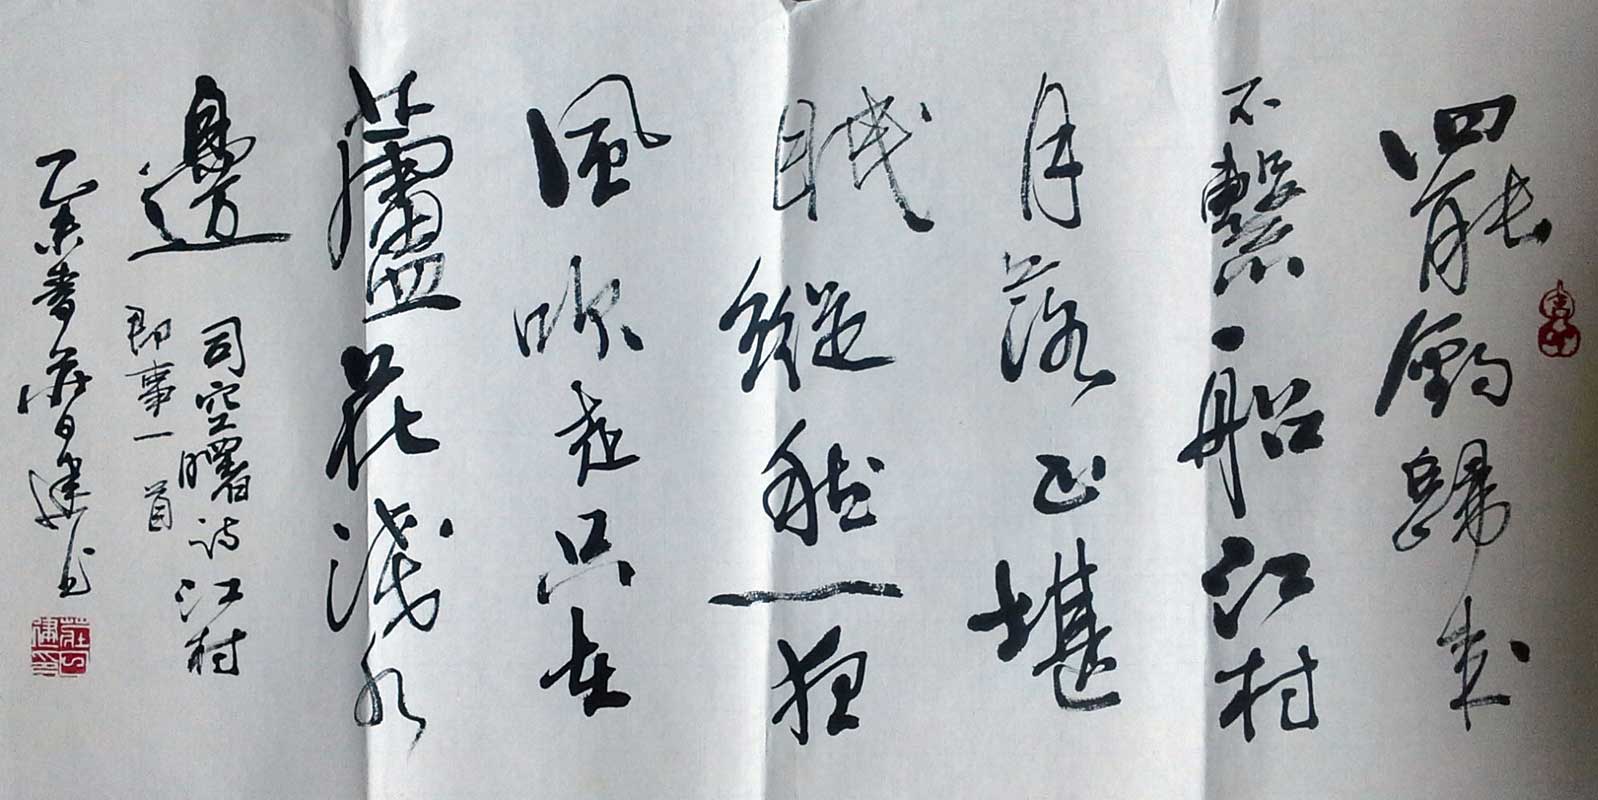 罷釣歸来
不繫船江村
月落正堪
眠縱然一夜
風吹去只在
蘆花淺水
邊
司空曙詩江村
即事一首
乙未 莊日建书